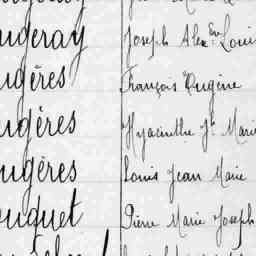 ugeray Joseph Alex Louis
ugères François Eugène
ugères Hyacinthe Marie
ugères Louis Jean Marie
ouquet Pierre Marie Joseph